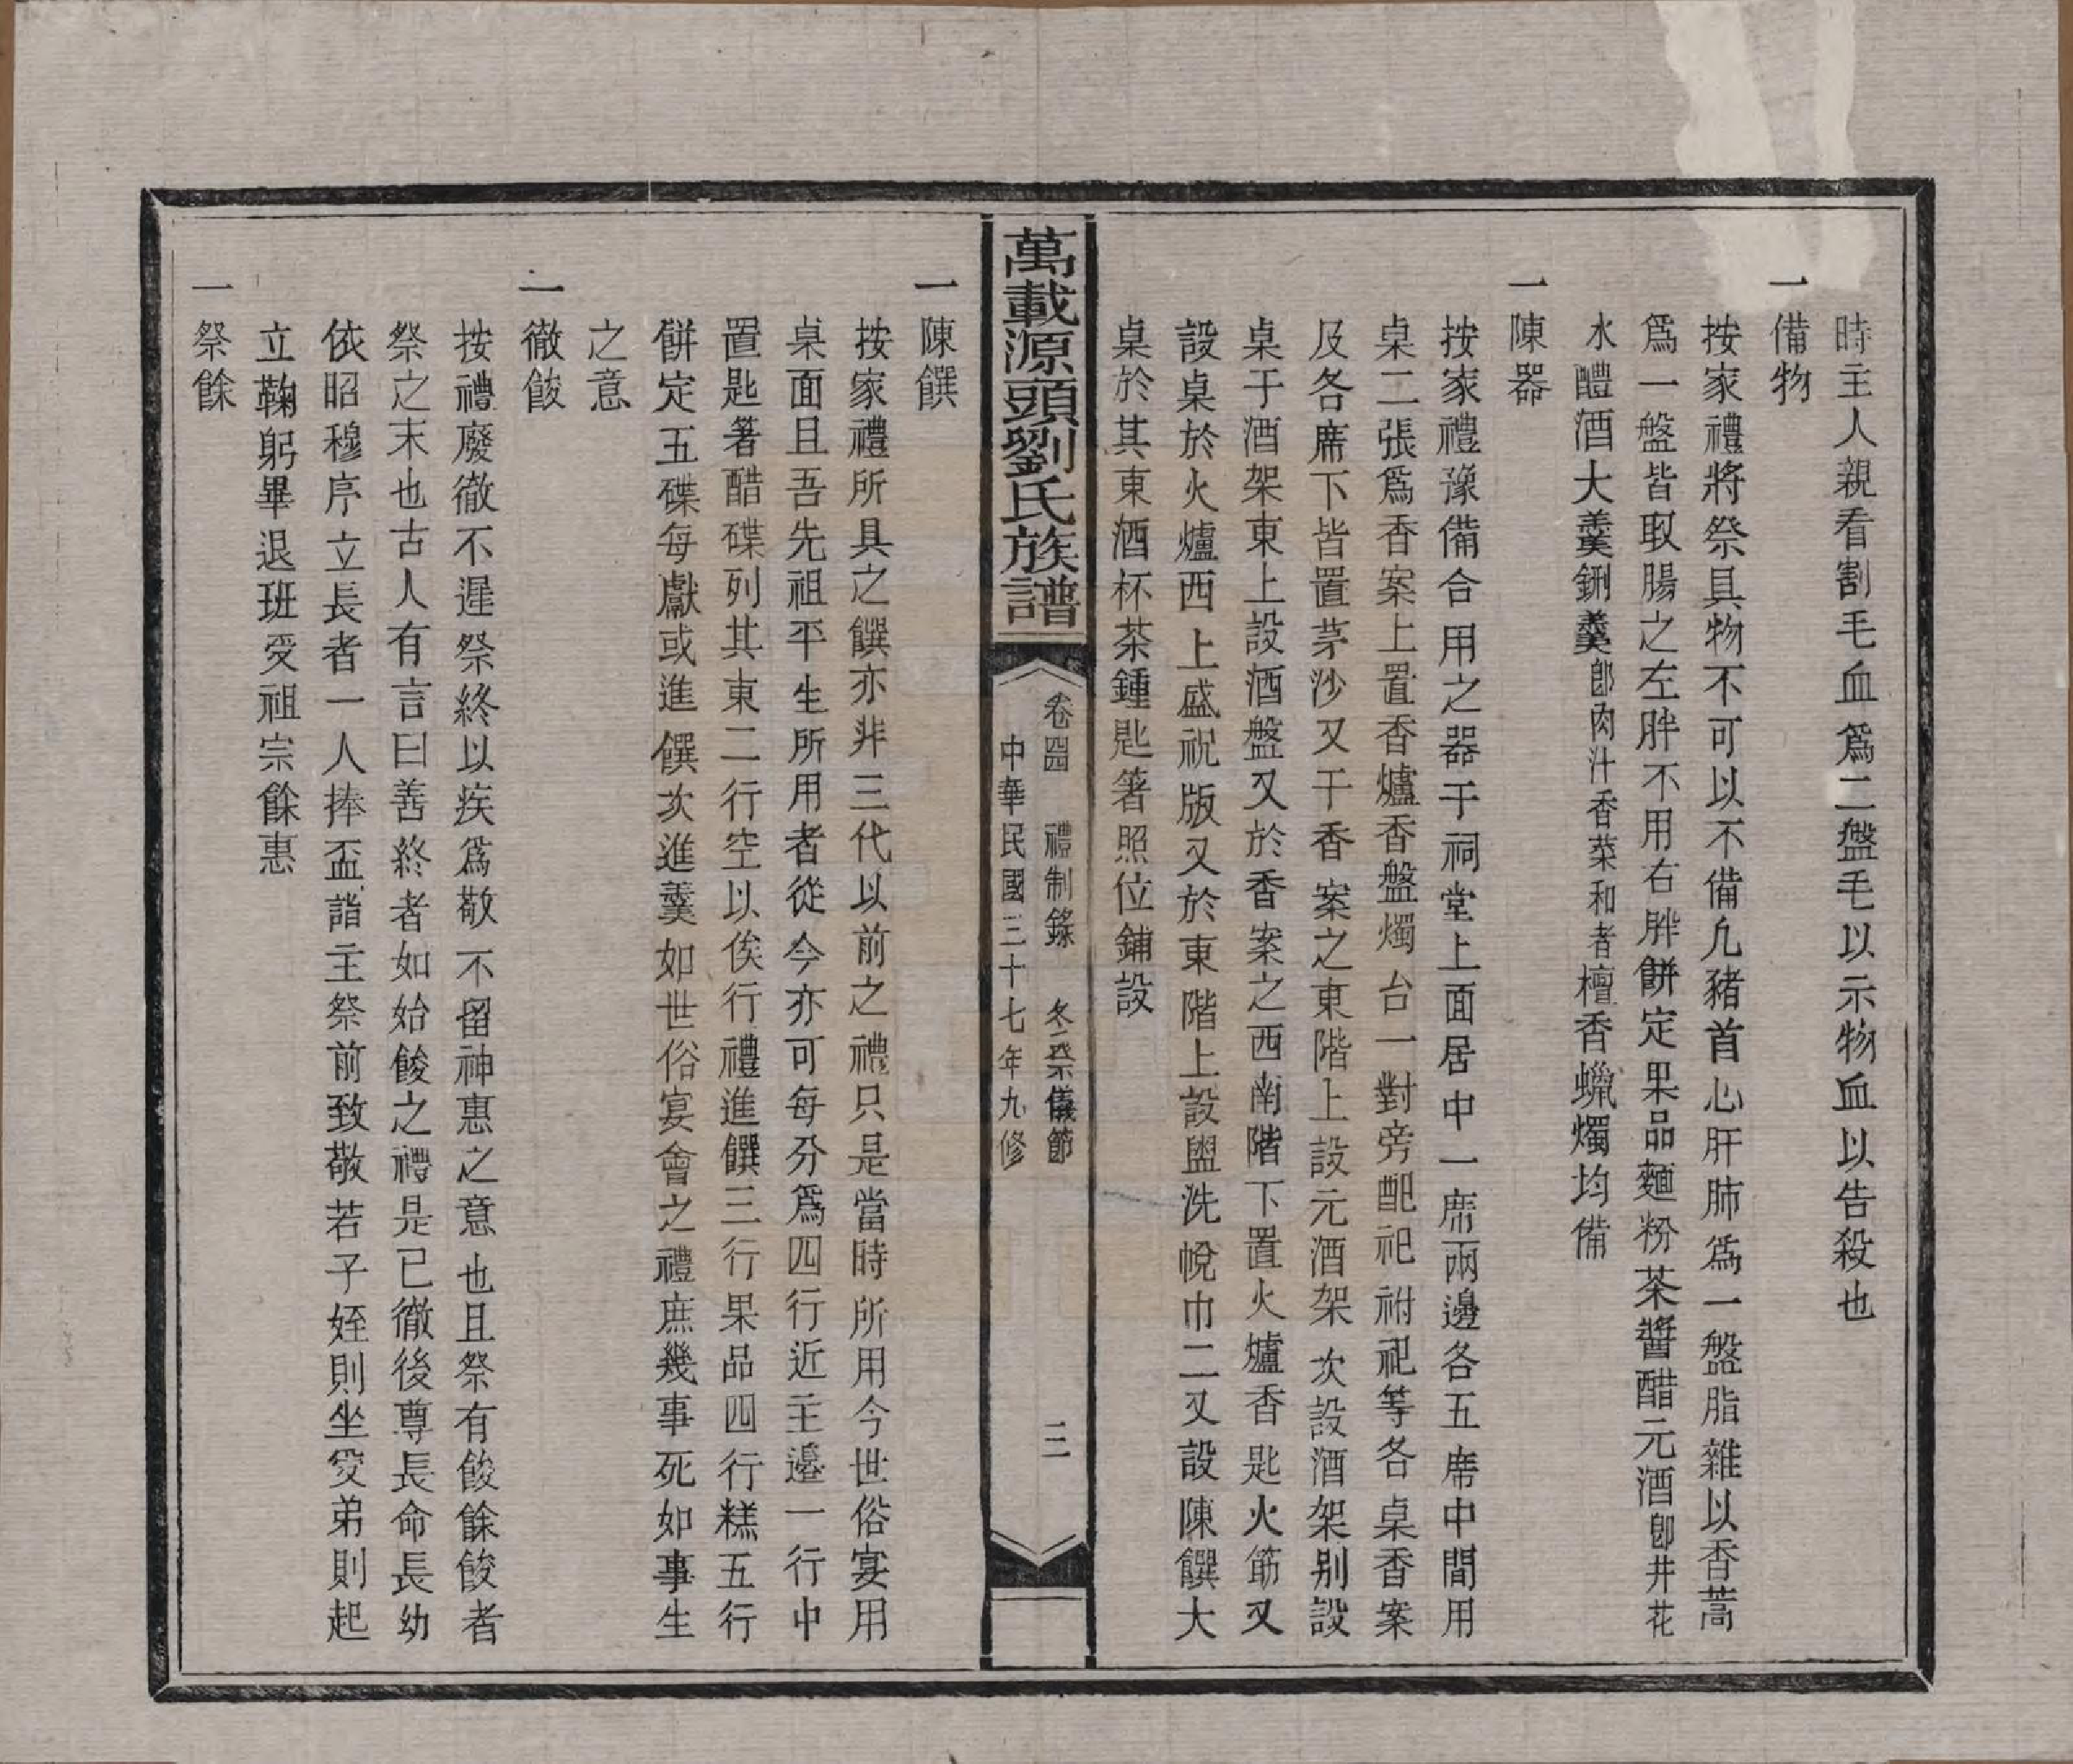 時主人親看割毛血爲二盤毛以示物血以告殺也
一備物
按家禮將祭具物不可以不備凡豬首心肝肺爲一盤脂雜以香蒿
爲一盤皆取腸之左胖不用右胖餅定果品麵粉茶醬醋元酒卽井花
水醴酒大羹鉶羹卽肉汁香菜和者檀香蠟燭均備
一陳器
按家禮豫備合用之器于祠堂上面居中一席兩邊各五席中間用
桌二張爲香案上置香爐香盤燭台一對旁配祀祔祀等各桌香案
及各席下皆置茅沙又于香案之東階上設元酒架次設酒架别設
桌于酒架東上設酒盤又於香案之西南階下置火爐香匙火筯又
設桌於火爐西上盛祝版又於東階上設盥洗帨巾二又設陳饌大
桌於其東酒杯茶鍾匙箸照位鋪設
萬載源頭劉氏族譜
卷四 禮制錄 冬祭儀節 三
中華民國三十七年九修
一陳饌
按家禮所具之饌亦非三代以前之禮只是當時所用今世俗宴用
桌面且吾先祖平生所用者從今亦可每分爲四行近主邊一行中
置匙箸醋碟列其東二行空以俟行禮進饌三行果品四行糕五行
餅定五碟每獻或進饌次進羹如世俗宴會之禮庶幾事死如事生
之意
一徹餕
按禮廢徹不遲祭終以疾爲敬不留神惠之意也且祭有餕餘餕者
祭之末也古人有言曰善終者如始餕之禮是已徹後尊長命長幼
依昭穆序立長者一人捧盃詣主祭前致敬若子姪則坐受弟則起
立鞠躬畢退班受祖宗餘惠
一祭餘